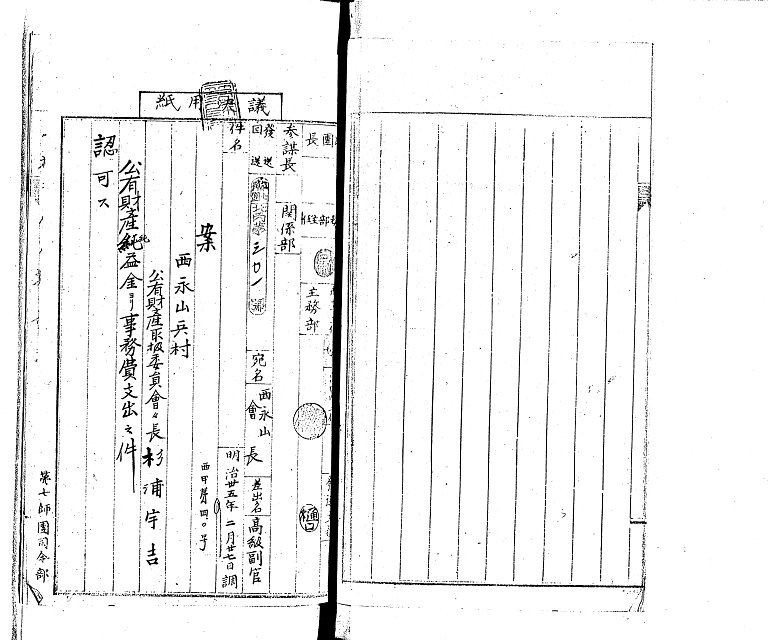 議案用紙
團長
参謀長
部
関係部
主務部
樋口
發送
回送
三〇一
號
宛名
西永山
會長
差出名
高級副官
件名
明治卅五年二月廿七日調
案
西甲第四〇号
西永山兵村
公有財産取扱委員會々長 杉浦宇吉
公有財産純益金ヨリ事務費支出之件
認可ス
第七師團司令部